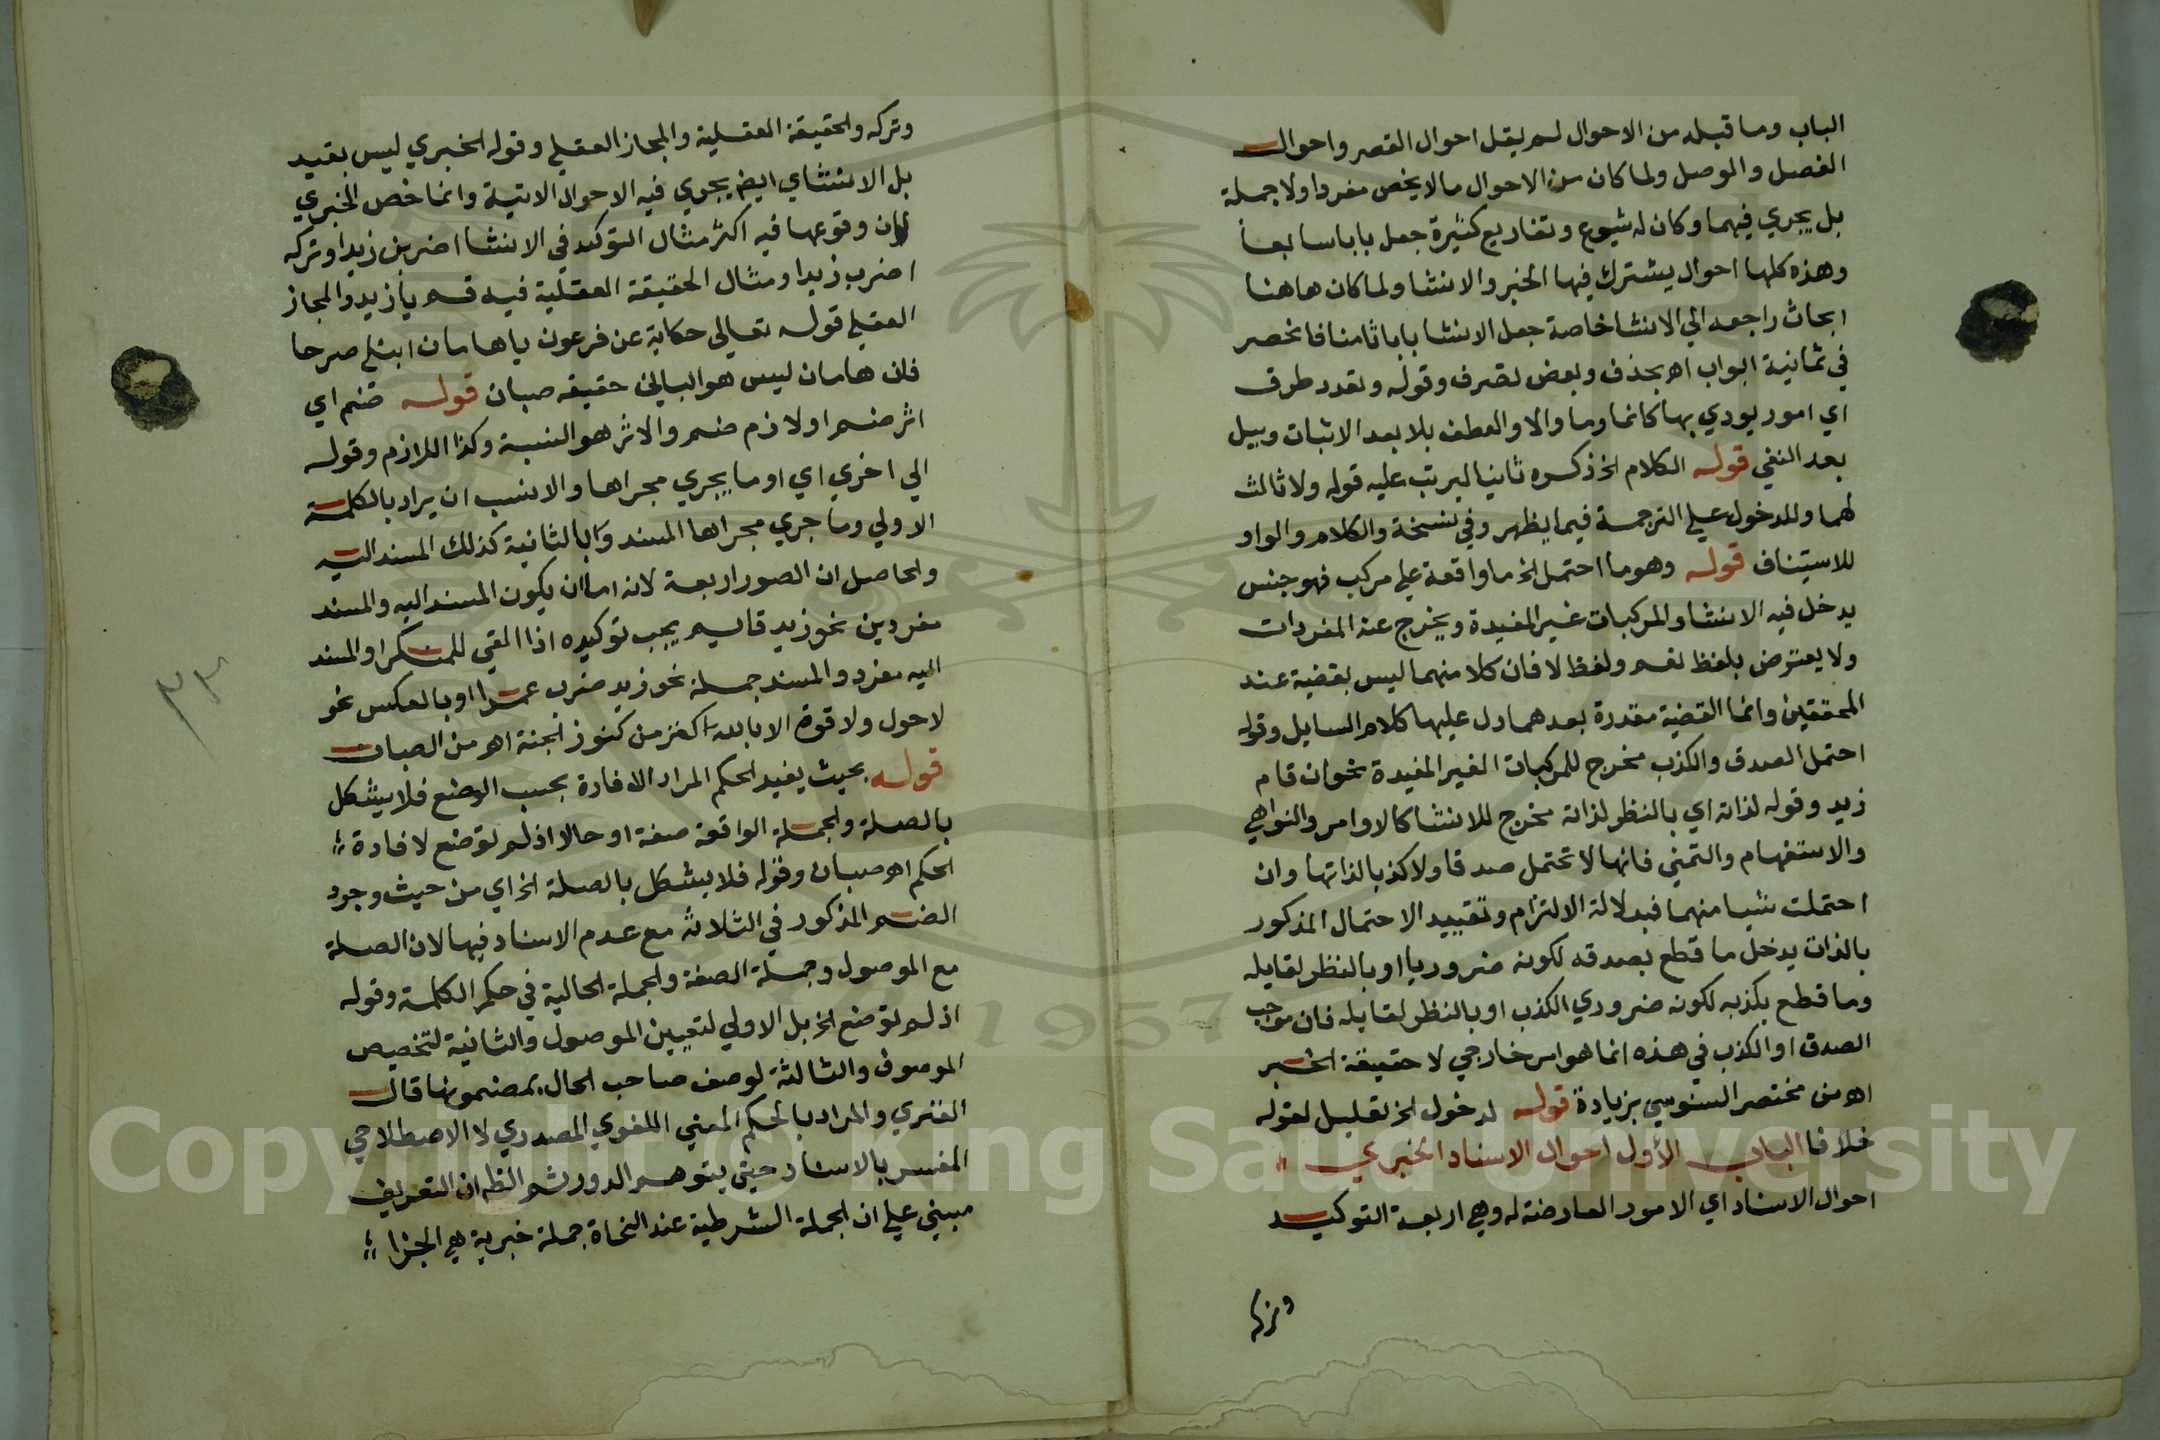 الباب وما قبله من الاحوال لم يقل احوال القصر واحوال
الفصل والوصل ولما كان من الاحوال ما لا يخص مفردا ولا جملة
بل يجري فيهما وكان له شيوع وتفاريع كثيرة جعل بابا سابعا
وهذه كلها احوال يشترك فيها الخبر والانشا ولما كان هاهنا
ابحاث راجعه الي الانشا خاصة جعل الانشا بابا ثامنا فانحصر
في ثمانية ابواب اهـ بحذف وبعض تصرف وقوله وتعدد طرق
اي امور يودي بها كانما وما والا والعطف بلا بعد الاثبات وببل
بعد النفي قوله الكلام الخ ذكره ثانيا ليرتب عليه قوله ولا ثالث
لهما وللدخول علي الترجمة فيما يظهر وفي نسخة والكلام والواو
للاستيناف قوله وهو ما احتمل الخ ما واقعة علي مركب فهو جنس
يدخل فيه الانشا والمركبات غير المفيدة ويخرج عنه المفردات
ولا يعترض بلفظ نعم ولفظ لا فان كلا منهما ليس بقضية عند
المحققين وانما القضية مقدرة بعدهما دل عليها كلام السايل وقوله
احتمل الصدق والكذب مخرج للمركبات الغير المفيدة نحو ان قام
زيد وقوله لذاته اي بالنظر لذاته مخرج للانشا كالاوامر والنواهي
والاستفهام والتمني فانها لا تحتمل صدقا ولا كذبا لذاتها وان
احتملت شيا منهما فبدلالة الالتزام وتقييد الاحتمال المذكور
بالذات يدخل ما قطع بصدقه لكونه ضروريا او بالنظر لقايله
وما قطع بكذبه لكونه ضروري الكذب او بالنظر لقايله فان موجب
الصدق او الكذب في هذه انما هو امر خارجي لا حقيقة الخبر
اهـ من مختصر السنوسي بزيادة قوله لدخول الخ تعليل لقوله
خلافا الباب الأول احوال الاسناد الخبري
احوال الاسناد اي الامور العارضة له وهي اربعة التوكيد
وتركه
وتركه والحقيقة العقلية والمجاز العقلي وقوله الخبري ليس بقيد
بل الانشاي ايض يجري فيه الاحوال الاتية وانما خص الخبري
لان وقوعها فيه اكثر مثال التوكيد في الانشا اضربن زيدا وتركه
اضرب زيدا ومثال الحقيقة العقلية فيه قم يا زيد والمجاز
العقلي قوله تعالي حكاية عن فرعون يا هامان ابن لي صرحا
فان هامان ليس هو الباني حقيقه صبان قوله ضم اي
اثر ضم او لازم ضم والاثر هو النسبة وكذا اللازم وقوله
الي اخري اي او ما يجري مجراها والانسب ان يراد بالكلمة
الاولي وما جري مجراها المسند وبالثانية كذلك المسند اليه
والحاصل ان الصور اربعة لانه اما ان يكون المسند اليه والمسند
مفردين نحو زيد قايم يجب توكيده اذا القي للمنكر او المسند
اليه مفرد والمسند جملة نحو زيد ضرب عمرا او بالعكس نحو
لا حول ولا قوة الا بالله كنز من كنوز الجنة اهـ من الصبان
قوله بحيث يفيد الحكم المراد الافادة بحسب الوضع فلا يشكل
بالصلة والجملة الواقعة صفة او حالا اذ لم توضع لافادة
الحكم اهـ صبان وقوله فلا يشكل بالصلة الخ اي من حيث وجود
الضم المذكور في الثلاثه مع عدم الاسناد فيها لان الصلة
مع الموصول وجملة الصفة والجملة الحالية في حكم الكلمة وقوله
اذ لم توضع الخ بل الاولي لتعيين الموصول والثانية لتخصيص
الموصوف والثالثة لوصف صاحب الحال بمضمونها قال
الفنري والمراد بالحكم المعني اللغوي المصدري لا الاصطلاحي
المفسر بالاسناد حتي يتوهم الدور ثم الظ ان التعريف
مبني علي ان الجملة الشرطية عند النحاة جملة خبرية هي الجزا
٣٣
1957
Copyright © King Saud University